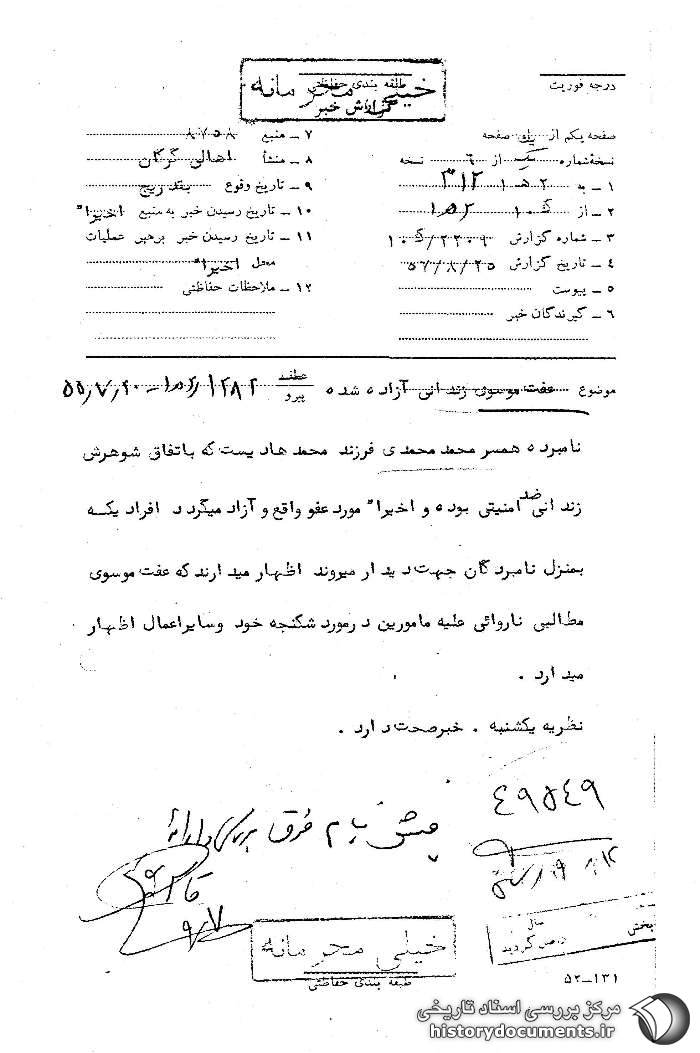 درجه فوریت
طبقه بندی حفاظتی
خیلی محرمانه
گزارش خبر
صفحه یکم از یک صفحه
نسخه شماره یک از ۶ نسخه
۱ - به ۲ هـ ۱ ۳۱۲
۲ - از ۱۰ ک ۱۵۲
۳ - شماره گزارش ۱۰ک/۲۲۰۹
۴ - تاریخ گزارش ۵۷/۸/۲۵
۵ - پیوست
۶ - گیرندگان خبر
۷ - منبع ۸۷۵۸
۸ - منشأ اهالی گرگان
۹ - تاریخ وقوع بتدریج
۱۰ - تاریخ رسیدن خبر به منبع اخیراً
۱۱ - تاریخ رسیدن خبر برهبر عملیات
محل اخیراً
۱۲ - ملاحظات حفاظتی
موضوع عفت موسوی زندانی آزاده شده عطف پیرو ۱۲۸۲
نامبرده همسر محمد محمدی فرزند محمد هادیست که باتفاق شوهرش
زندانی ضد امنیتی بوده و اخیراً مورد عفو واقع و آزاد میگردد افرادیکه
بمنزل نامبردگان جهت دیدار میروند اظهار میدارند که عفت موسوی
مطالبی ناروائی علیه مامورین درمورد شکنجه خود وسایراعمال اظهار
میدارد .
نظریه یکشنبه . خبرصحت دارد .
۴۹۵۴۹
۹/۷
بخش
سال
خیلی محرمانه
طبقه بندی حفاظتی
۵۲-۱۳۱
مرکز بررسی اسناد تاریخی
historydocuments.ir